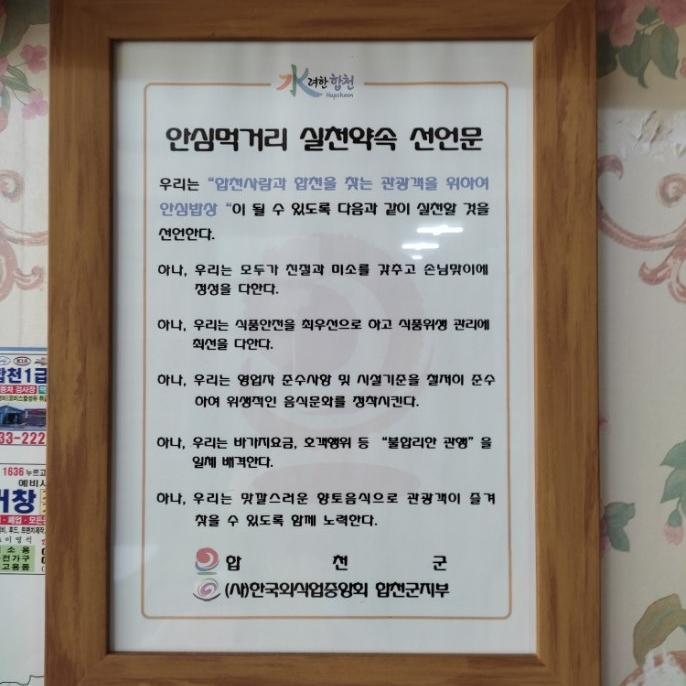 水려한합천
Hapcheon
안심먹거리 실천약속 선언문
우리는 "합천사람과 합천을 찾는 관광객을 위하여
안심밥상 "이 될 수 있도록 다음과 같이 실천할 것을
선언한다.
하나, 우리는 모두가 친절과 미소를 갖추고 손님맞이에
정성을 다한다.
하나, 우리는 식품안전을 최우선으로 하고 식품위생 관리에
최선을 다한다.
하나, 우리는 영업자 준수사항 및 시설기준을 철저히 준수
하여 위생적인 음식문화를 정착시킨다.
하나, 우리는 바가지요금, 호객행위 등 "불합리한 관행"을
일체 배격한다.
하나, 우리는 맛깔스러운 향토음식으로 관광객이 즐겨
찾을 수 있도록 함께 노력한다.
합 천 군
(사)한국외식업중앙회 합천군지부
합천1급
33-222
1636 누르고
예비
거창